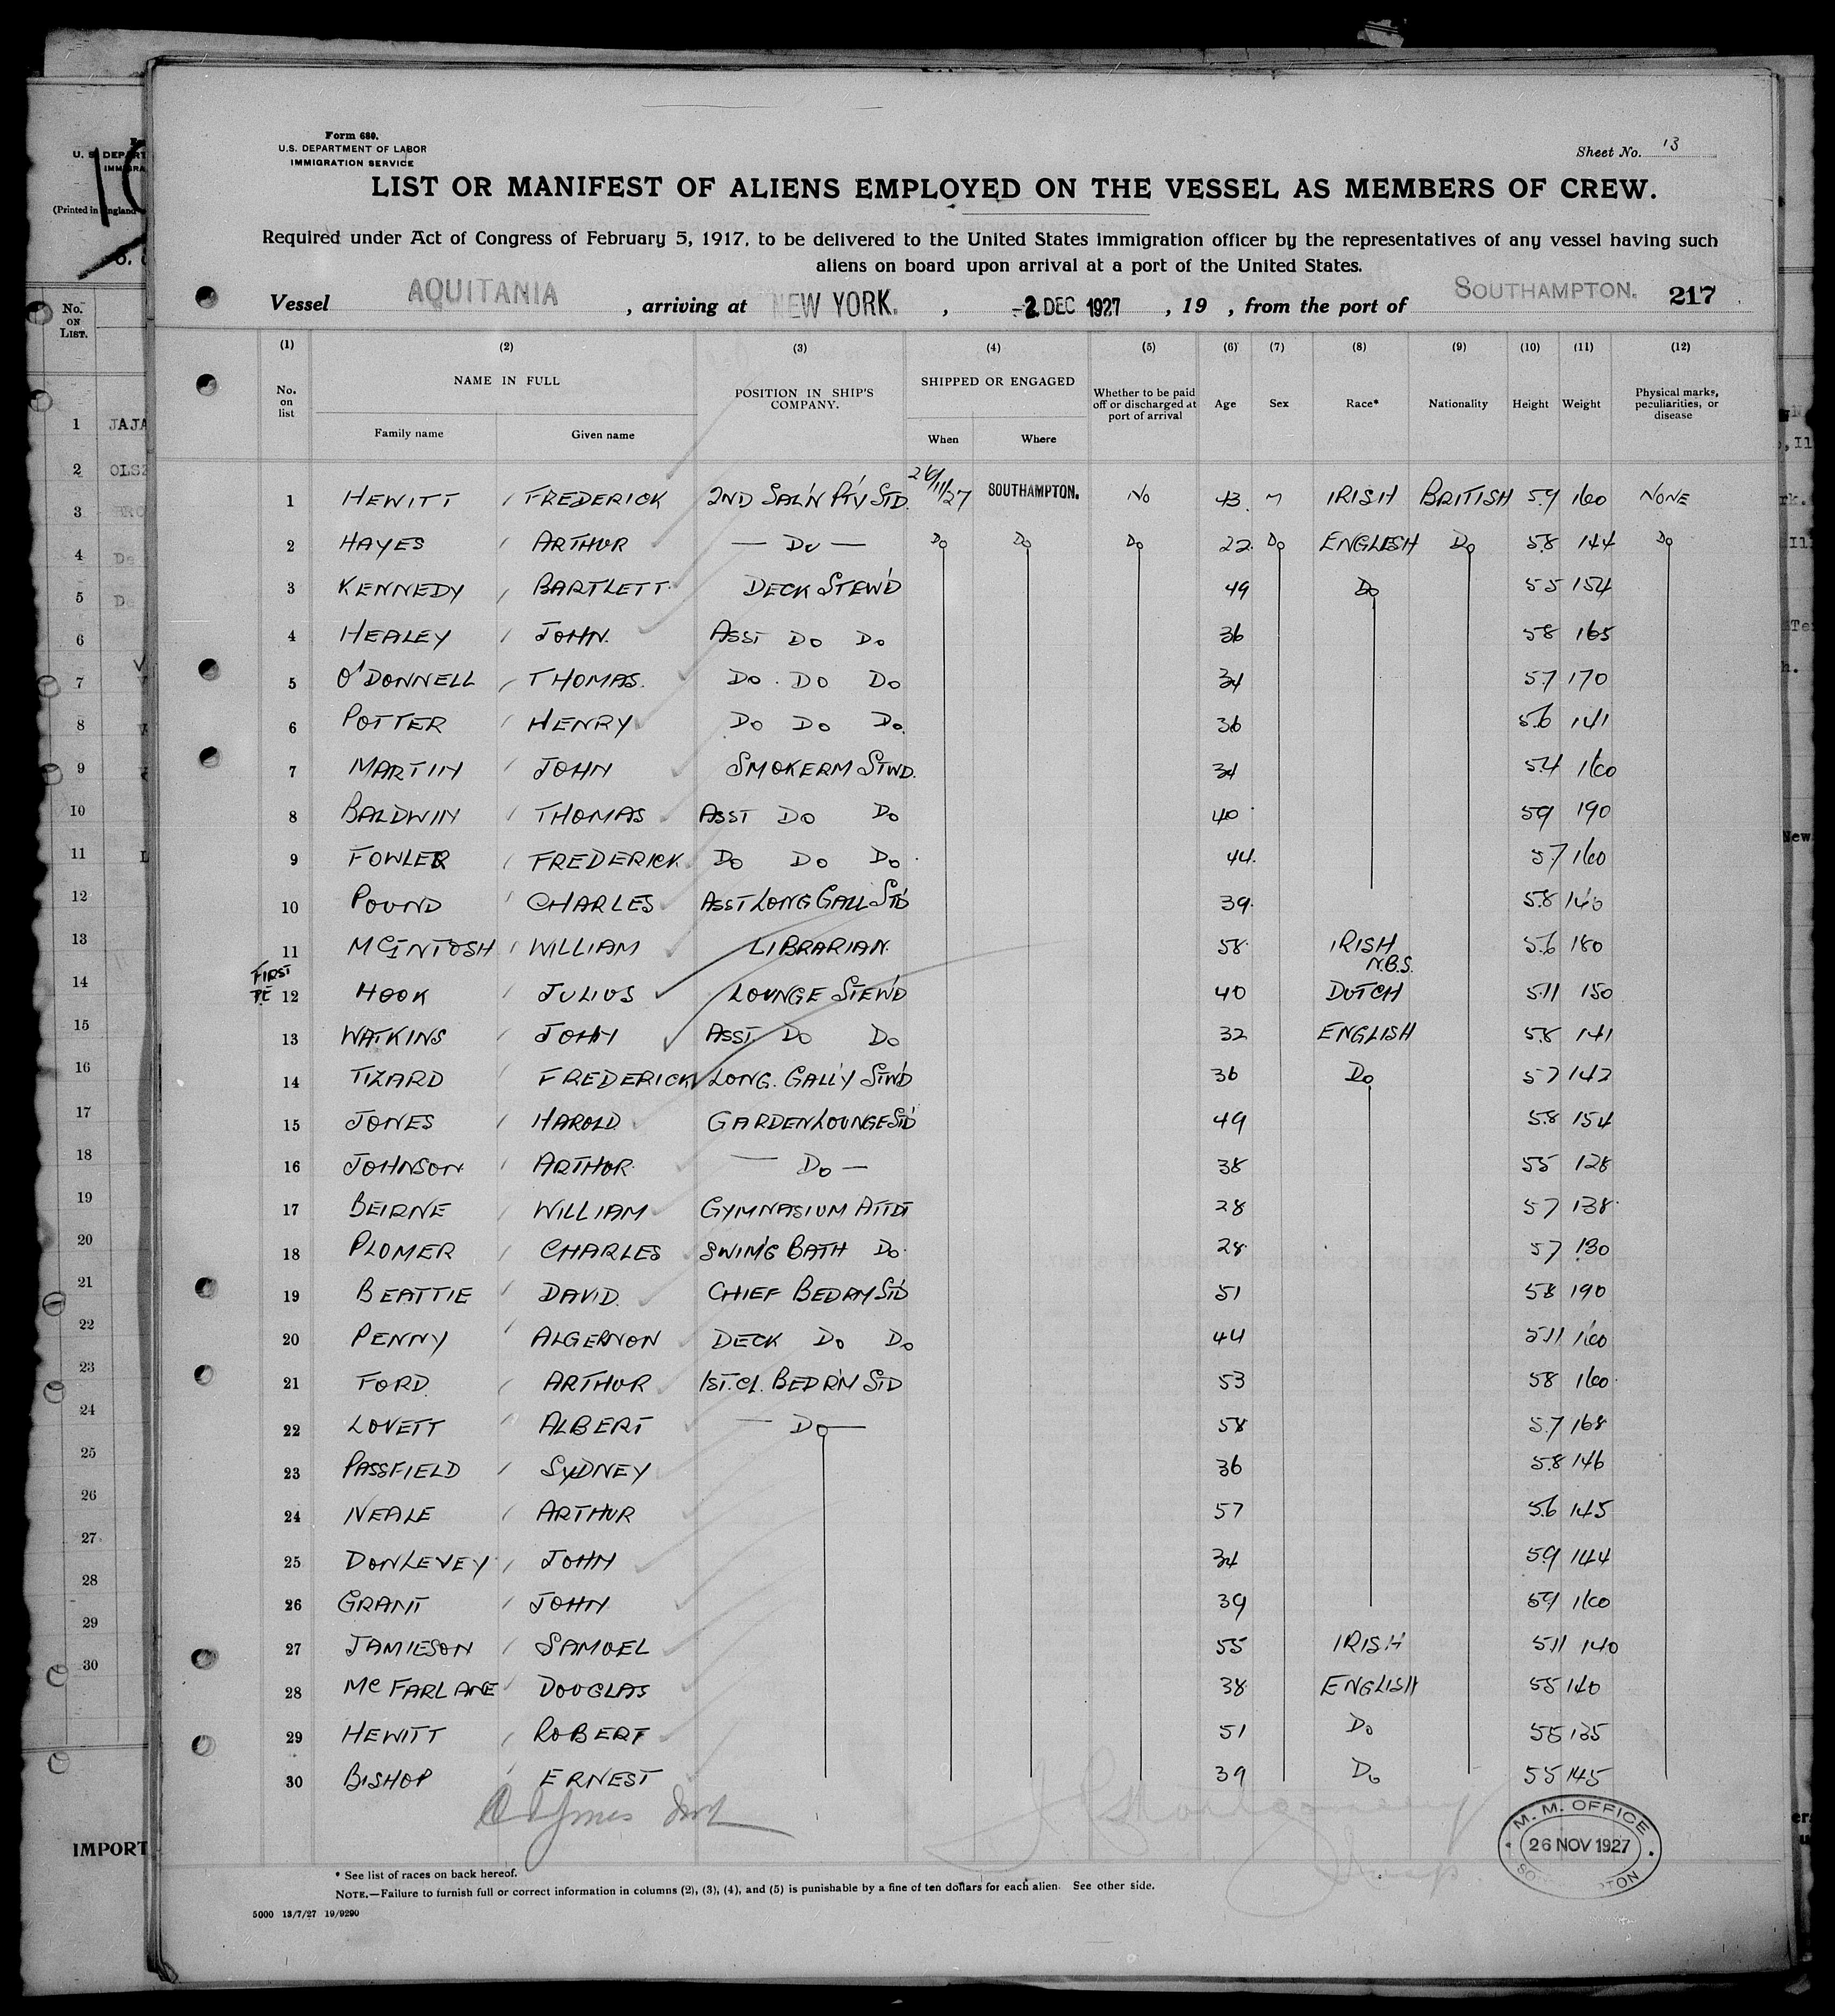 Form 680.
U.S. DEPARTMENT OF LABOR
IMMIGRATION SERVICE
Sheet No. 13
LIST OR MANIFEST OF ALIENS EMPLOYED ON THE VESSEL AS MEMBERS OF CREW.
Required under Act of Congress of February 5, 1917, to be delivered to the United States immigration officer by the representatives of any vessel having such
aliens on board upon arrival at a port of the United States.
Vessel AQUITANIA , arriving at NEW YORK. , -2 DEC 1927 , 19 , from the port of SOUTHAMPTON. 217
(1) (2) (3) (4) (5) (6) (7) (8) (9) (10) (11) (12)
No. on list NAME IN FULL Family name Given name POSITION IN SHIP'S COMPANY. SHIPPED OR ENGAGED When Where Whether to be paid off or discharged at port of arrival Age Sex Race* Nationality Height Weight Physical marks, peculiarities, or disease
1 HEWITT FREDERICK 2ND SAL'N P'TY STD. 26/11/27 SOUTHAMPTON. NO 43 M IRISH BRITISH 5.9 160 NONE
2 HAYES ARTHUR — DO — DO DO DO 22 DO ENGLISH DO 5.8 144 DO
3 KENNEDY BARTLETT DECK STEW'D 49 DO 5 5 154
4 HEALEY JOHN. ASST DO DO 36 5 8 165
5 O'DONNELL THOMAS. DO. DO DO 34 5.7 170
6 POTTER HENRY DO DO DO. 36 5.6 141
7 MARTIN JOHN SMOKERM STWD. 34 5.4 160
8 BALDWIN THOMAS ASST DO DO 40 5 9 190
9 FOWLER FREDERICK DO DO DO 44. 5.7 160
10 POUND CHARLES ASST LONG GALL STD 39 5.8 140
11 MCINTOSH WILLIAM LIBRARIAN. 58 IRISH 5.6 180
N.B.S.
FIRST
12 HOOK JULIUS LOUNGE STEW'D 40 DUTCH 5.11 150
13 WATKINS JOHN ASST. DO DO 32 ENGLISH 5.8 141
14 TIZARD FREDERICK LONG. GALL'Y STW'D 36 DO 5 7 142
15 JONES HAROLD GARDEN LOUNGE STD 49 5.8 154
16 JOHNSON ARTHUR — DO — 38 5 5 128
17 BEIRNE WILLIAM GYMNASIUM ATTDT 28 5 7 138
18 PLOMER CHARLES SWIM'G BATH DO. 28 5 7 130
19 BEATTIE DAVID. CHIEF BEDRM STD 51 5 8 190
20 PENNY ALGERNON DECK DO DO 44 5.11 160
21 FORD ARTHUR 1ST.Cl. BEDR'M STD 53 5 8 160
22 LOVETT ALBERT — DO — 58 5.7 168
23 PASSFIELD SYDNEY 36 5.8 146
24 NEALE ARTHUR 57 5.6 145
25 DONLEVEY JOHN 34 5.9 144
26 GRANT JOHN 39 5.9 160
27 JAMIESON SAMUEL 55 IRISH 5.11 140
28 MC FARLANE DOUGLAS 38 ENGLISH 5 5 140
29 HEWITT ROBERT 51 DO 5 5 135
30 BISHOP ERNEST 39 DO 5 5 145
M. M. OFFICE
26 NOV 1927
* See list of races on back hereof.
NOTE.—Failure to furnish full or correct information in columns (2), (3), (4), and (5) is punishable by a fine of ten dollars for each alien. See other side.
5000 13/7/27 19/9290
(Printed in England
No. ON LIST.
1 JAJA
2
3
4 Do
5 Do
6
7
8
9
10
11
12
13
14
15
16
17
18
19
20
21
22
23
24
25
26
27
28
29
30
IMPORT
New